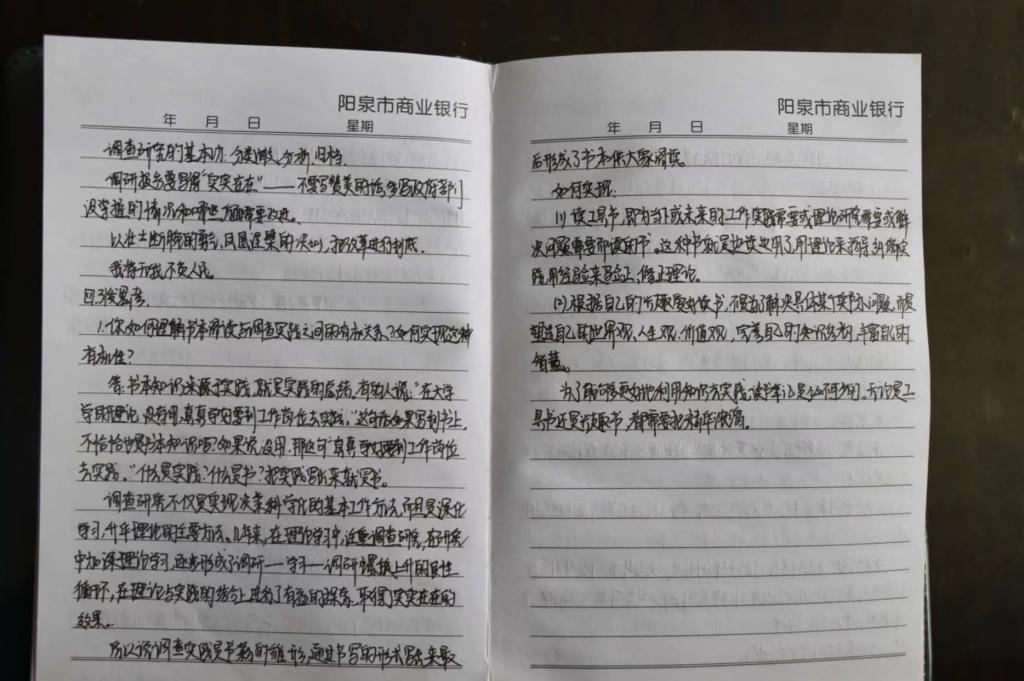 阳泉市商业银行
年 月 日 星期
调查研究的基本功:分类、分析、归档。
调研报告要写得"实实在在"——不要写赞美的话,多写政府部门
没掌握的情况和哪些方面需要改进。
以壮士断腕的勇气,凤凰涅槃的决心,把改革进行到底。
我将无我,不负人民。
回答思考。
1.你如何理解书本阅读与调查实践之间的有机关系?如何实现这种
有机性?
答:书本知识来源于实践,就是实践的总结,有的人说:"在大学
学的理论,没有用,真真学的要到工作岗位去实践。"这句话如果写到书上,
不恰恰也是书本知识吗?如果说没用,那这句"真真学的要到工作岗位
去实践。"什么是实践?什么是书?把实践写出来就是书。
调查研究不仅是实现决策科学化的基本工作方法,而且是深化
学习,升华理论的重要方法。几年来,在理论学习中,注重调查研究,在研究
中加深理论学习,逐步形成了调研—学习—调研螺旋上升的良性
循环,在理论与实践的结合上进行了有益的探索,取得了实实在在的
效果。
所以说调查实践是书籍的雏形,通过书写的形式写出来最
阳泉市商业银行
年 月 日 星期
后形成了书本供大家阅读。
如何实现:
(1)读工具书,即为当下或未来的工作实践需要或理论研究需要或解
决问题需要而读的书。这种书就是边读边用,用理论来指导实践,
用经验来修正理论。
(2)根据自己的乐趣爱好读书,不是为了解决具体某个实际问题,而是
塑造自己的世界观、人生观、价值观,完善自己的知识结构,丰富自己的
智慧。
为了最后更好地利用知识去实践,读书笔记是必不可少的。无论是工
具书还是兴趣书,都需要把精华浓缩。